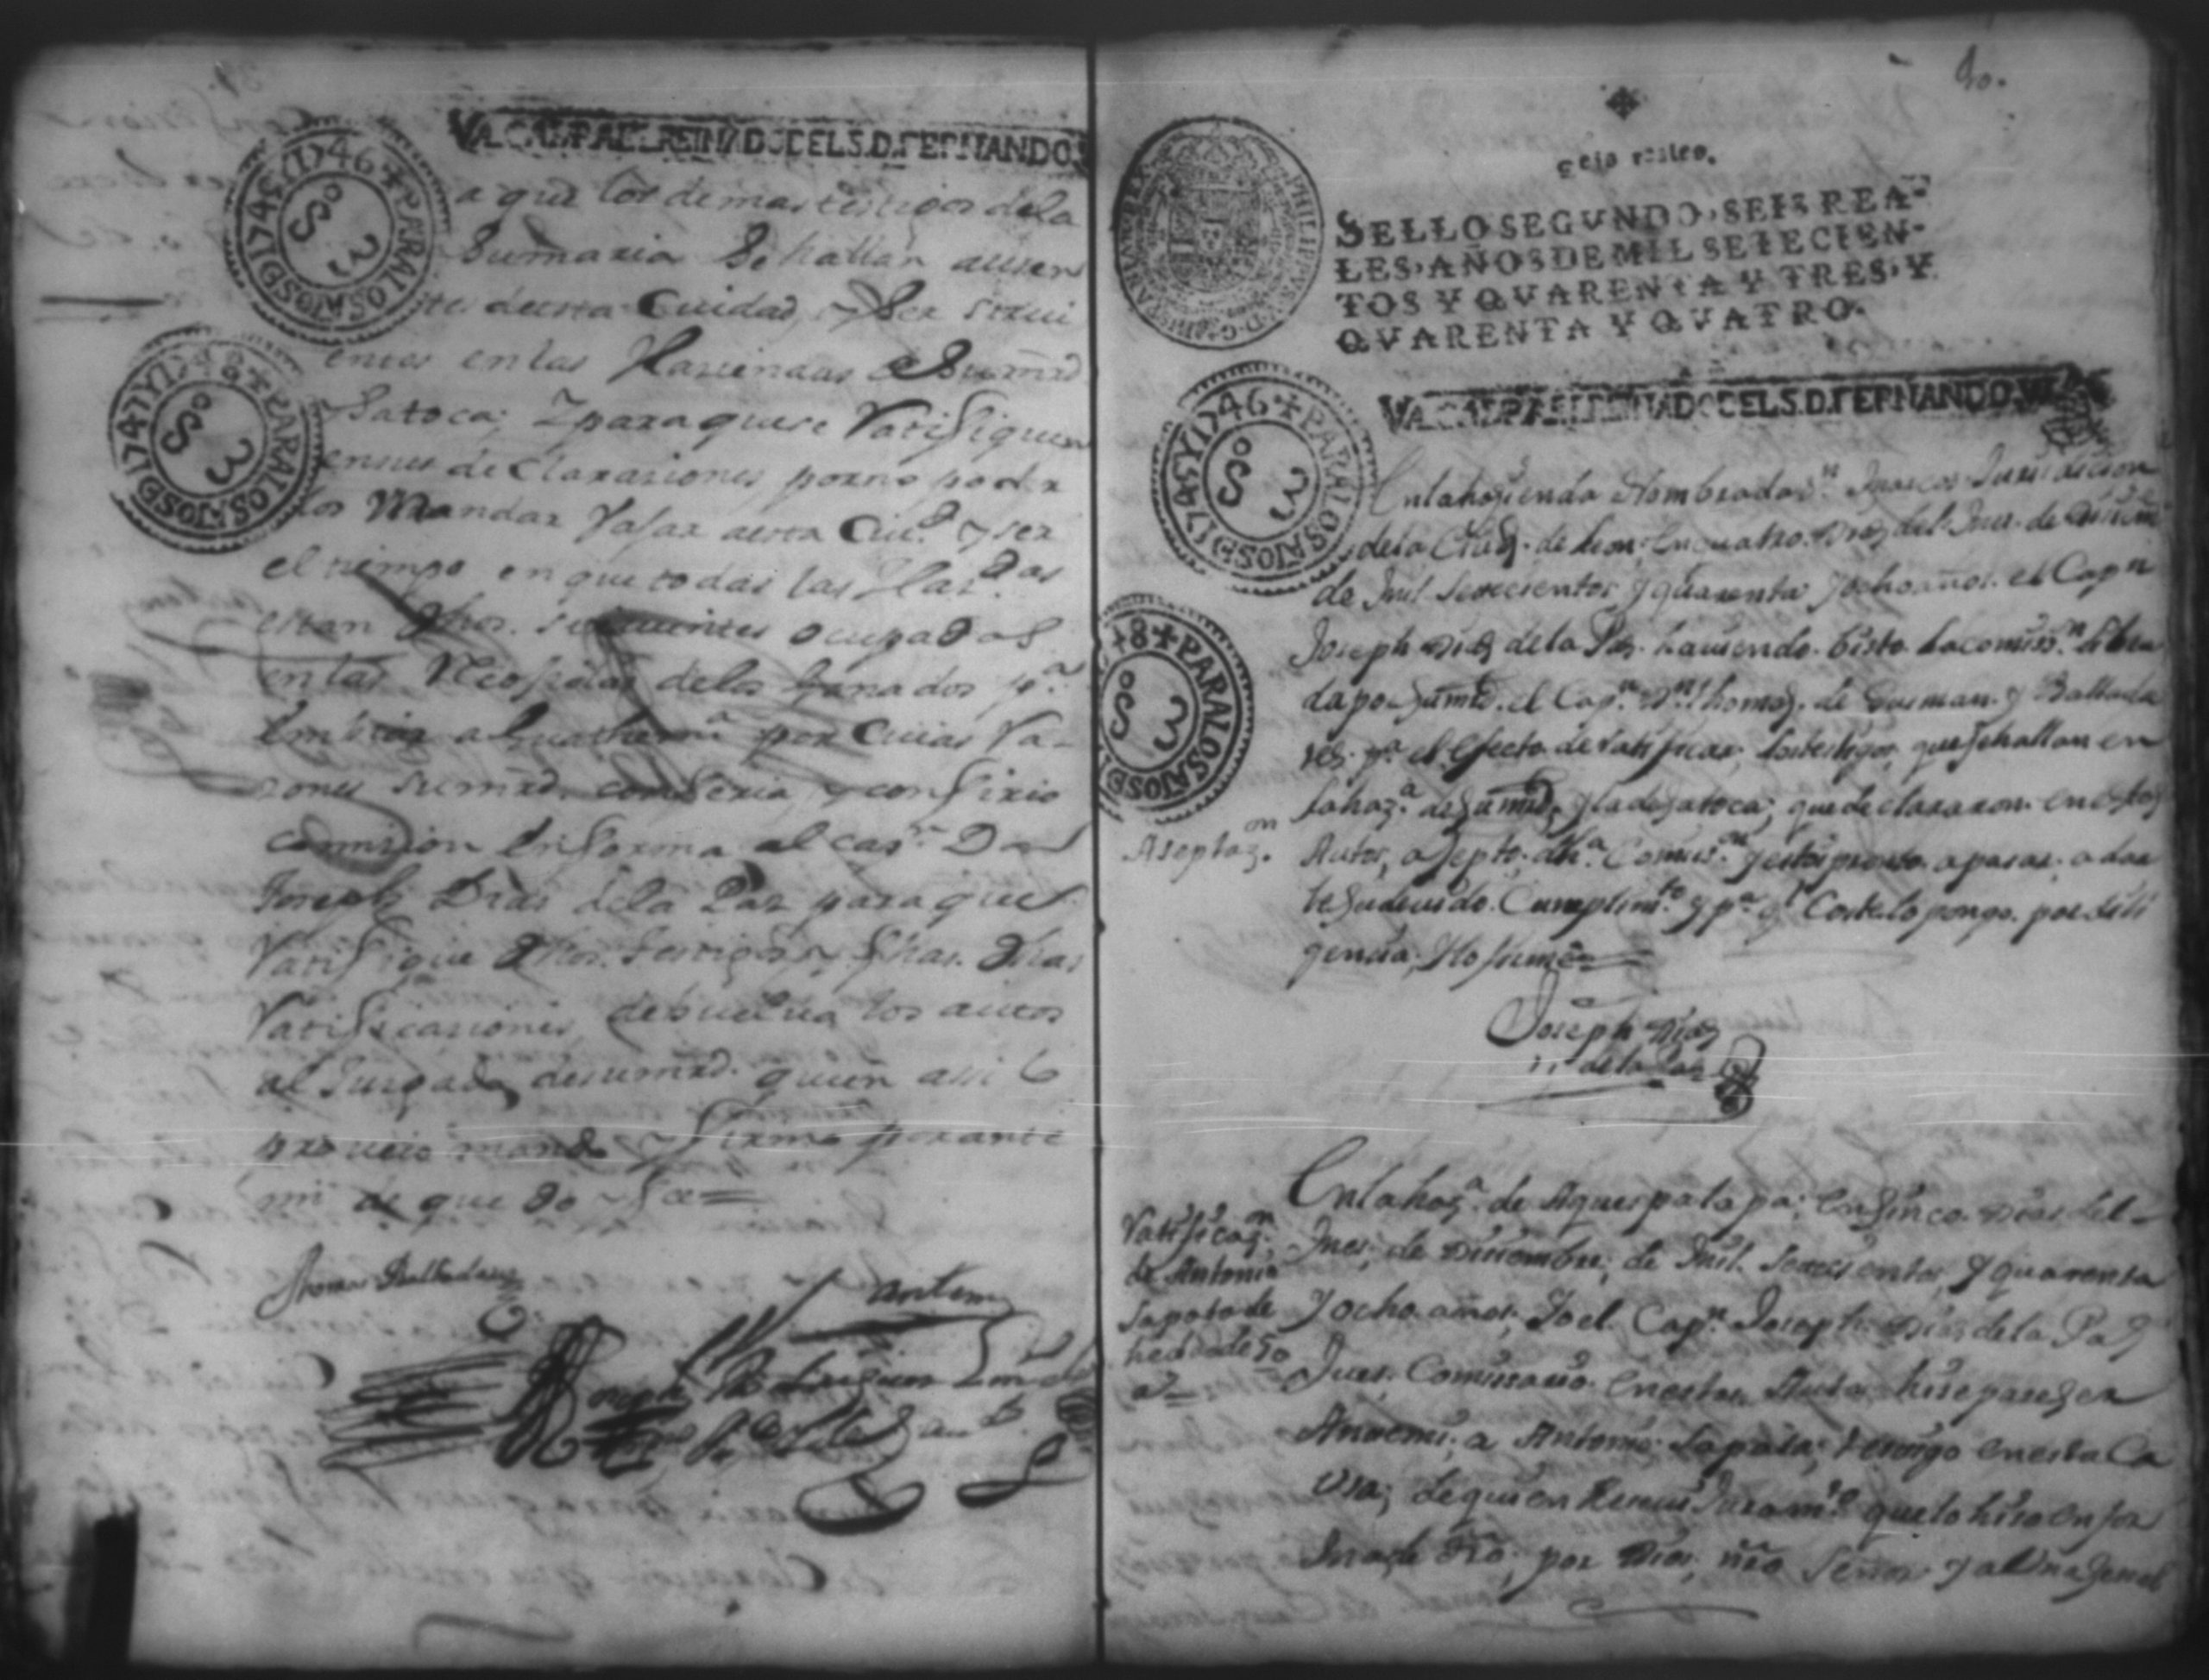 VALGA PA EL REINADO DEL S.D. FERNANDO
PARA LOS AÑOS DE 1745 Y 1746
SS 3
PARA LOS AÑOS DE 1747 Y
SS 3
a que los demas testigos dela
Sumaria Se hallan ausen
tes desta Cuidad, y Ser sirui
entes en las Haziendas de Su mrd
Satoca; Y para que se Ratifiquen
en sus declaraziones por no poder
los Mandar Vajar aesta Ciud y ser
el tiempo en que todas las Hazdas
estan dhos. siruientes ocupados
en las delos ganados pa
Embiar a Guathema por Cuias Ra
zones su mrd. conferia y confirio
comision en forma al capn Dn
Joseph Dias dela Paz para que
Ratifique dhos. testigos y fhas. dhas
Ratificaciones, debuelua los autos
al Jurgado de su mrd. quien assi lo
proueio mando y firmo por ante
mi de que doy fee=
Thomas Balladares
Ante mi
40.
SELLO SEGVNDO, SEIS REA-
LES, AÑOS DE MIL SETECIEN-
TOS Y QVARENTA Y TRES, Y
QVARENTA Y QVATRO.
VALGA PA EL REINADO DEL S.D. FERNANDO VI
PARA LOS AÑOS DE 1745 Y 1746
SS 3
48 PARA LOS AÑOS DE
SS 3
En la hasienda Nombrada Sn Marcos Jurisdicion
dela Ciud. de Leon, En quatro Dias del Mes de Disiem
de Mil Setecientos y quarenta y ocho años. el Capn
Joseph Dias dela Pas. hauiendo bisto la comissn libra
da por su md. el Capn Dn Thomas de Gusman y Ballada
res. pa el efecto de ratificar los testigos, que se hallan en
la haza de su md, y la de satoca; que declararon en estos
Aseptazon
Autos, asepto dha Comisn y estoi pronto a pasar a dar
le su deuido Cumplimto y pa q Coste lo pongo por dili
gencia, y lo firme=
Joseph Dias
de la Paz
Ratificazon
de Antonio
Sapata de
hedad de 50
as=
En la haza de Aquespalapa; En sinco Dias del
Mes, de Disiembre, de Mil Setesientos, y quarenta
y ocho años, Yo el Capn Joseph Dias de la Paz
Jues, Comissario En estos Autos hise pareser
Ante mi; a Antonio Sapata; testigo en esta Ca
usa; de quien Reseui Juramto que lo hiso en for
ma de dro, por Dios, nro Señor y a Una Señal